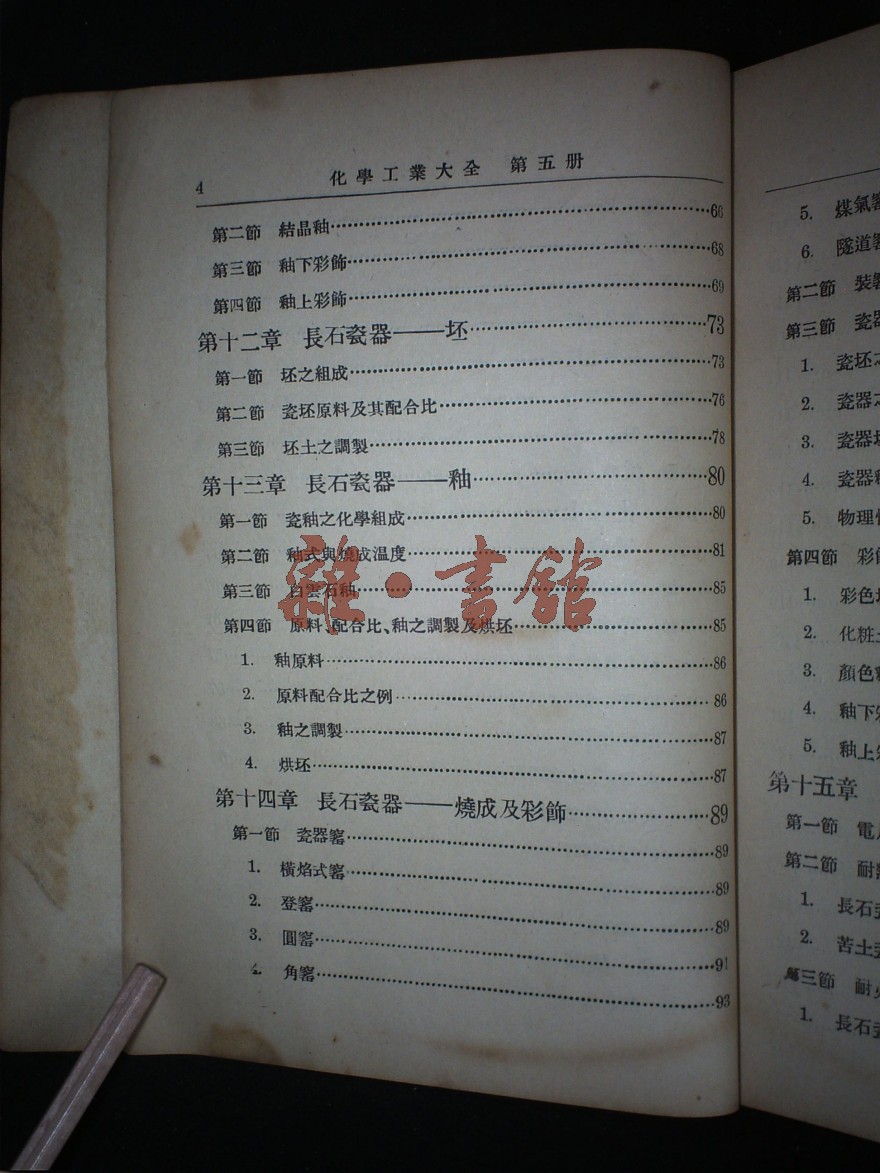 4 化學工業大全 第五册
第二節 結晶釉……66
第三節 釉下彩飾……68
第四節 釉上彩飾……69
第十二章 長石瓷器——坯……73
第一節 坯之組成……73
第二節 瓷坯原料及其配合比……76
第三節 坯土之調製……78
第十三章 長石瓷器——釉……80
第一節 瓷釉之化學組成……80
第二節 釉式與燒成温度……81
第三節 白雲石釉……85
第四節 原料、配合比、釉之調製及烘坯……85
1. 釉原料……86
2. 原料配合比之例……86
3. 釉之調製……87
4. 烘坯……87
第十四章 長石瓷器——燒成及彩飾……89
第一節 瓷器窰……89
1. 橫焰式窰……89
2. 登窰……89
3. 圓窰……91
4. 角窰……93
雜·書館
5. 煤氣窰
6. 隧道窰
第二節 裝窰
第三節 瓷器
1. 瓷坯之
2. 瓷器之
3. 瓷器
4. 瓷器
5. 物理性
第四節 彩飾
1. 彩色
2. 化粧土
3. 顏色釉
4. 釉下彩
5. 釉上彩
第十五章
第一節 電
第二節 耐
1. 長石瓷
2. 苦土瓷
第三節 耐火
1. 長石瓷